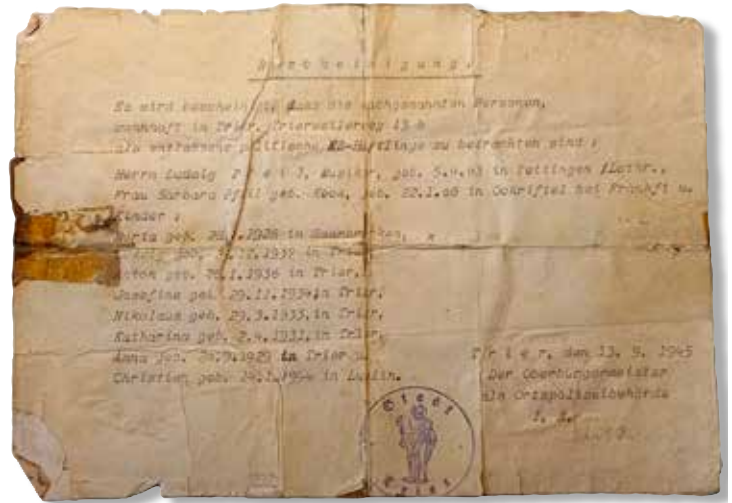 B e s c h e i n i g u n g .
Es wird bescheinigt, dass die nachgenannten Personen,
wohnhaft in Trier, Trierweilerweg 13
als entlassene politische KZ-Häftlinge zu betrachten sind :
Herrn Ludwig P f e i l, Musiker, geb. in Tettingen /Lothr.,
Frau Barbara Pfeil geb. geb. 22.1.06 in Oekriftel bei Frankft u.
Kinder :
Maria geb. 1926 in Saarbrücken,
geb. in Trier,
Anton geb. 26.1.1936 in Trier,
Josefine geb. 29.11.1934 in Trier,
Nikolaus geb. 29.3.1933, in Trier,
Katharina geb. 2.4.1931, in Trier,
Anna geb. 1929 in Trier u.
Christian geb. in Lublin.
T r i e r, den 13. 9. 1945
Der Oberbürgermeister
als Ortspolizeibehörde
Stadt
Trier